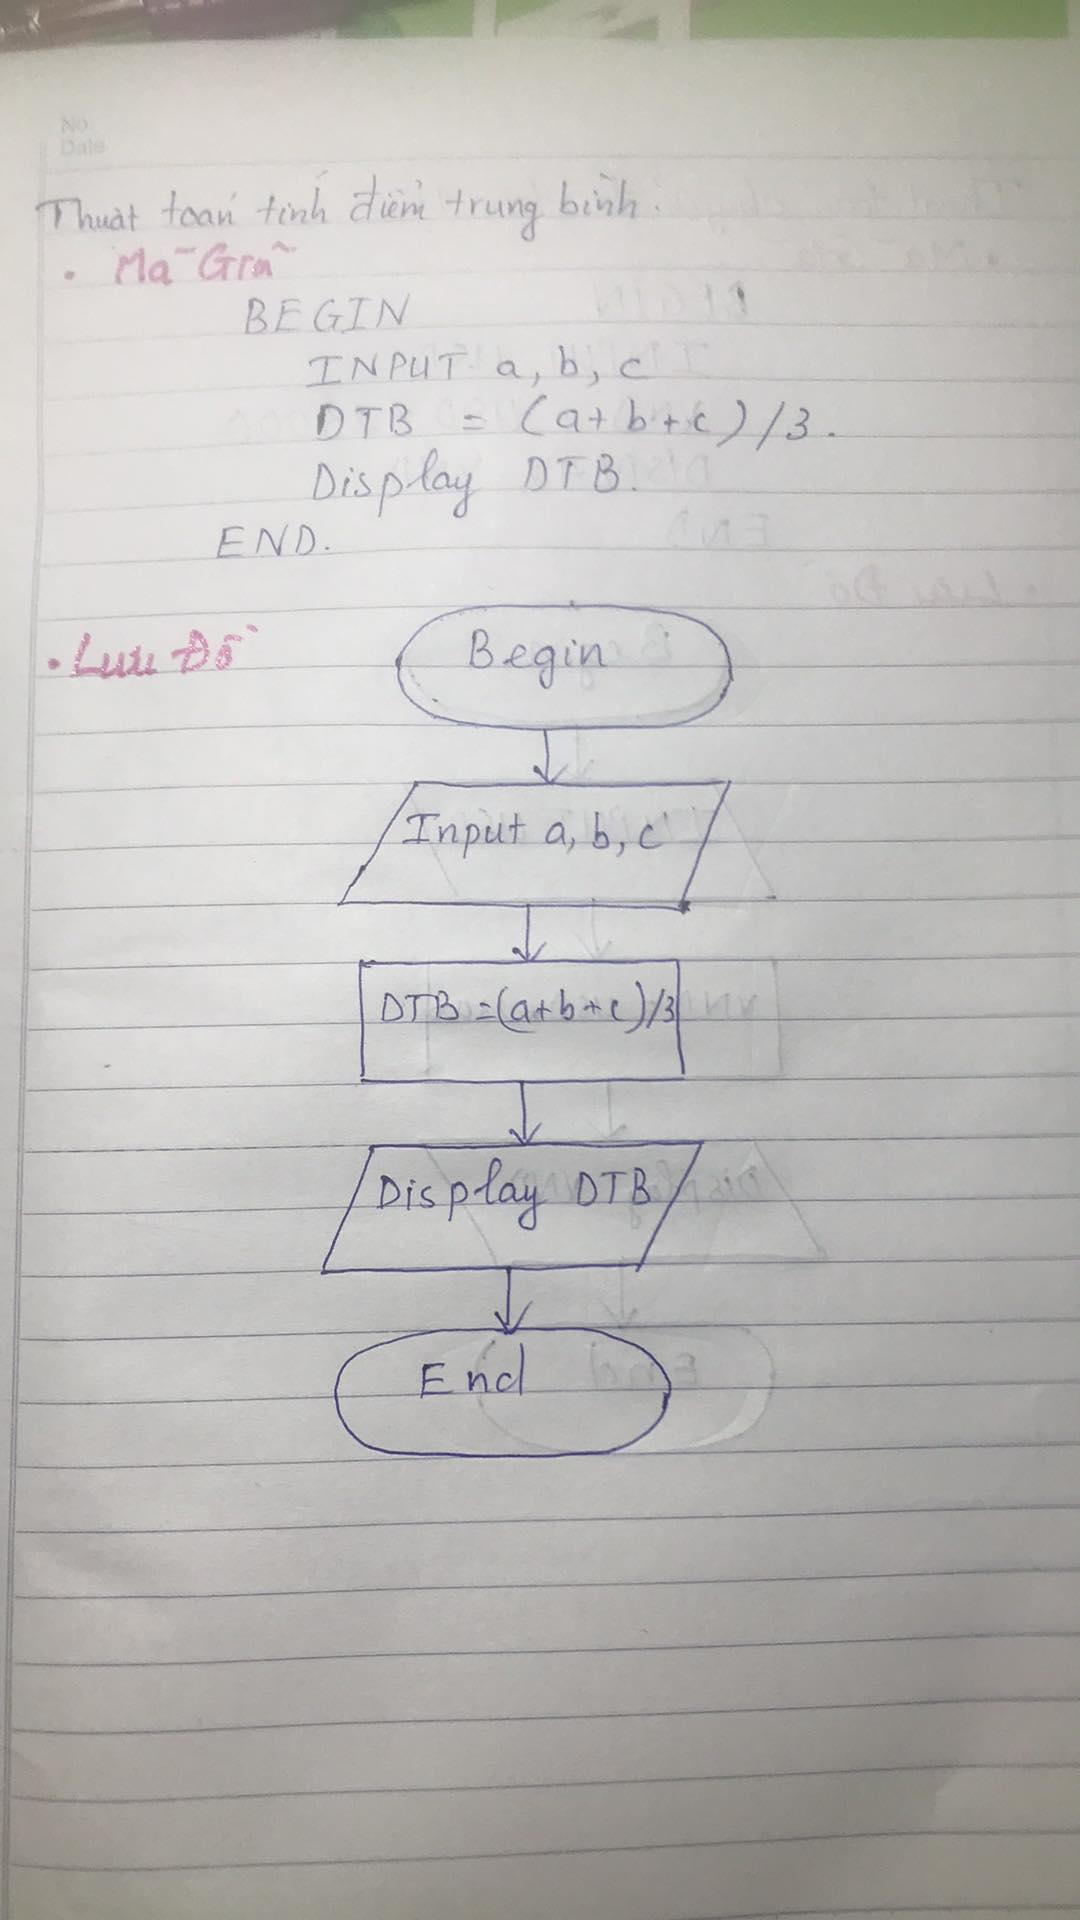 No.
Date
Thuật toán tính điểm trung bình.
• Mã Giả
BEGIN
INPUT a, b, c
DTB = (a+b+c)/3.
Display DTB.
END.
• Lưu Đồ
Begin
Input a, b, c
DTB =(a+b+c)/3
Display DTB
End